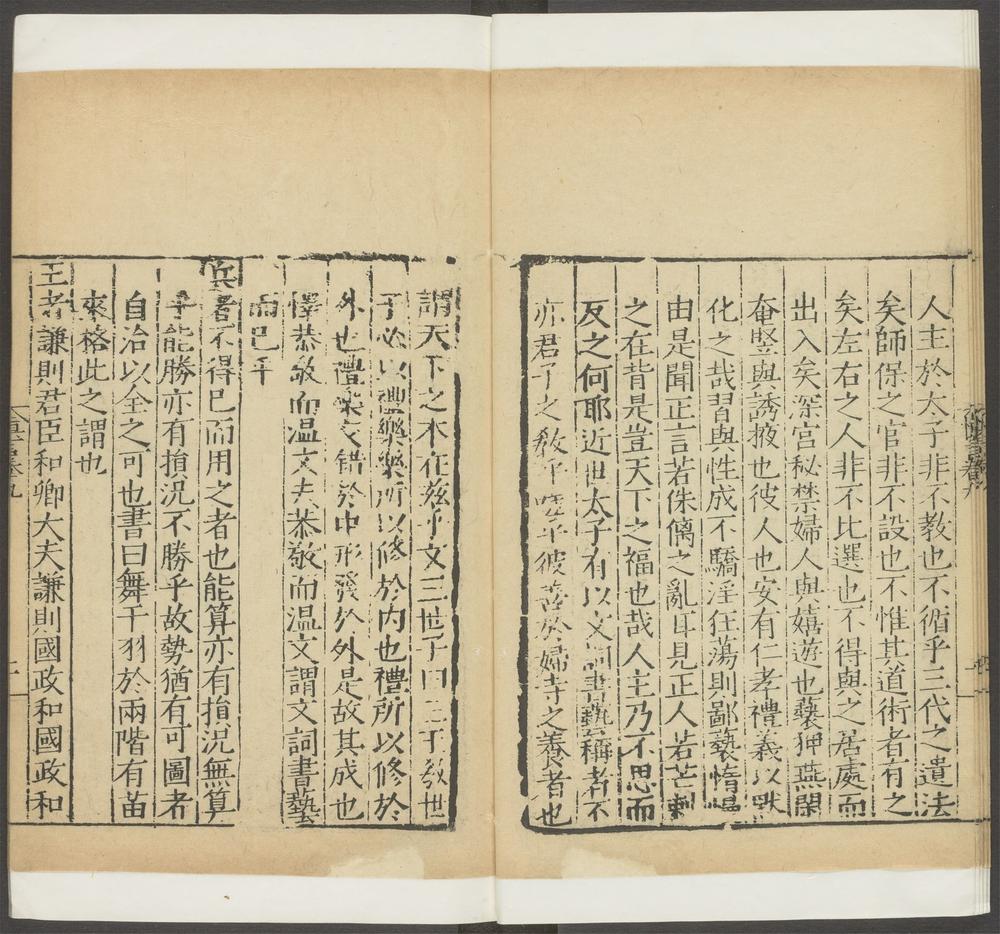 人主於太子非不教也不循乎三代之遺法
矣師保之官非不設也不惟其道術者有之
矣左右之人非不比選也不得與之居處而
出入矣深宫秘禁婦人與嬉遊也䙝狎燕閑
奄豎與誘掖也彼人也安有仁孝禮義以
化之哉習與性成不驕淫狂蕩則鄙䙝惰慢
由是聞正言若侏㒧之亂耳見正人若芒刺
之在背是豈天下之福也哉人主乃不思而
反之何耶近世太子有以文詞書藝稱者不
亦君子之教乎嗟乎彼善於婦寺之養者也
謂天下之本在兹乎文王世子曰三王教世
子必以禮樂樂所以修於内也禮所以修於
外也禮樂交錯於中形發於外是故其成也
懌恭敬而温文夫恭敬而温文謂文詞書藝
而已乎
兵者不得已而用之者也能算亦有損况無算
乎能勝亦有損况不勝乎故勢猶有可圖者
自治以全之可也書曰舞干羽於兩階有苗
來格此之謂也
王者謙則君臣和卿大夫謙則國政和國政和